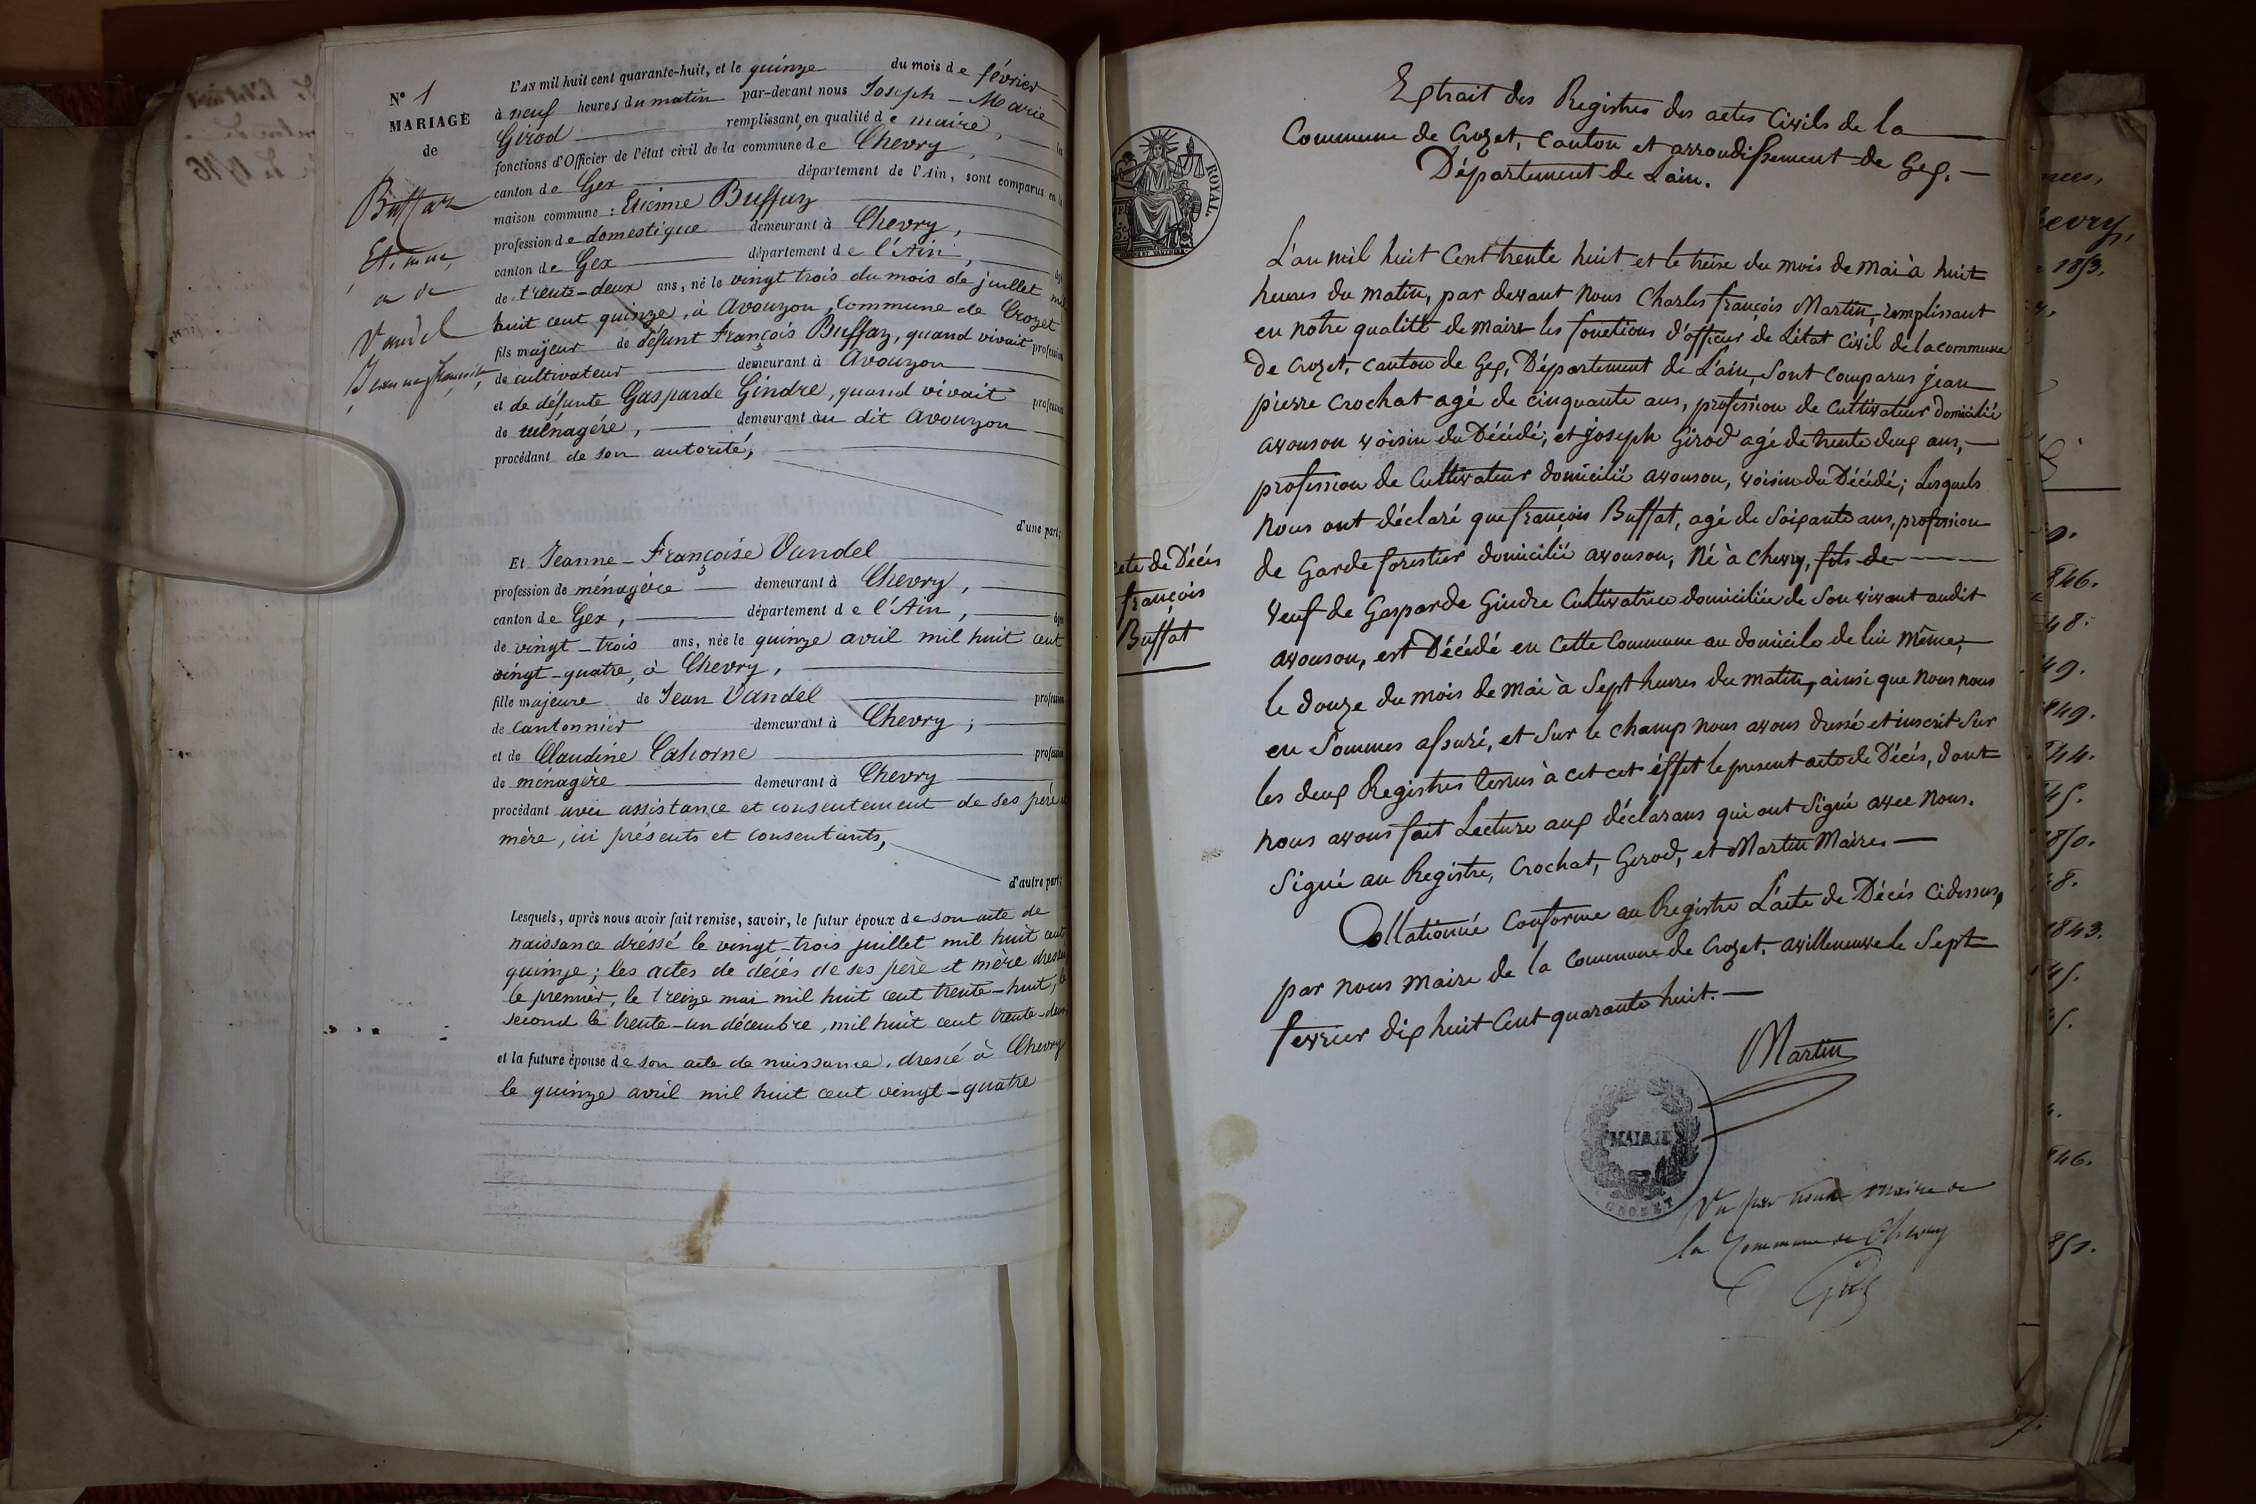 N° 1
MARIAGE
de
Buffaz
Etienne
Vandel
Jeanne françoise
L'AN mil huit cent quarante-huit, et le quinze du mois de février
à neuf heures du matin par-devant nous Joseph - Marie
Girod remplissant, en qualité de maire,
fonctions d'Officier de l'état civil de la commune de Chevry,
canton de Gex département de l'Ain, sont comparus en la
maison commune : Etienne Buffaz
profession de domestique demeurant à Chevry,
canton de Gex département de l'Ain,
de trente-deux ans, né le vingt trois du mois de juillet mil
huit cent quinze, à Avouzon, commune de Crozet
fils majeur de défunt François Buffaz, quand vivait profession
de cultivateur demeurant à Avouzon
et de défunte Gasparde Gindre, quand vivait profession
de ménagère, demeurant au dit Avouzon
procédant de son autorité,
d'une part;
Et Jeanne - Françoise Vandel
profession de ménagère demeurant à Chevry,
canton de Gex, département de l'Ain,
de vingt-trois ans, née le quinze avril mil huit cent
vingt-quatre, à Chevry,
fille majeure de Jean Vandel profession
de cantonnier demeurant à Chevry;
et de Claudine Cahorne profession
de ménagère demeurant à Chevry
procédant avec assistance et consentement de ses père
mère, ici présents et consentants,
d'autre part;
Lesquels, après nous avoir fait remise, savoir, le futur époux de son acte de
naissance dréssé le vingt-trois juillet mil huit cent
quinze; les actes de décés de ses père et mère dressés
le premier, le treize mai mil huit cent trente-huit, le
second le trente-un décembre, mil huit cent trente-deux
et la future épouse de son acte de naissance, dressé à Chevry
le quinze avril mil huit cent vingt-quatre
ROYAL.
Extrait des Registres des actes Civils de la
Commune de Crozet, Canton et arrondissement de Gex.
Département de Lain.
acte de Décés
françois
Buffat
L'an mil huit Cent trente huit et le treise du mois de Mai à huit
heures du matin, par devant Nous Charles françois Martin, remplissant
en notre qualité de maire les fonctions d'officier de L'état Civil de la commune
de Crozet, canton de Gex, Département de L'ain, Sont Comparus jean
pierre Crochat agé de cinquante ans, profession de Cultivateur domicilié
avouson voisin du Décédé, et joseph Girod agé de trente deux ans,
profession de Cultivateur domicilié avouson, voisin du Décédé; Lesquels
Nous ont déclaré que françois Buffat, agé de Soixante ans, profession
de Garde forestier domicilié avouson, Né à Chevry, fils de
veuf de Gasparde Gindre Cultivatrice domiciliée de Son vivant audit
avouson, est Décédé en Cette Commune au domicile de lui même,
le douze du mois de Mai à Sept heures du matin, ainsi que Nous nous
en Sommes assuré, et Sur le champ nous avons dressé et inscrit Sur
les deux Registres tenus à cet cet éffet le present acte de Décés, dont
Nous avons fait Lecture aux déclarans qui ont Signé avec Nous.
Signé au Registre, Crochat, Gerod, et Martin Maire.
Collationné Conforme au Registre L'acte de Décés Cidessus,
par nous Maire de la Commune de Crozet. avilleneuve le Sept
fevrier dix huit Cent quarante huit.
Martin
MAIRIE
CROZET
Vu par nous Maire de
la Commune de Chevry
evry,
1853.
846.
48.
49.
849.
44.
45.
1850.
48.
1843.
45.
46.